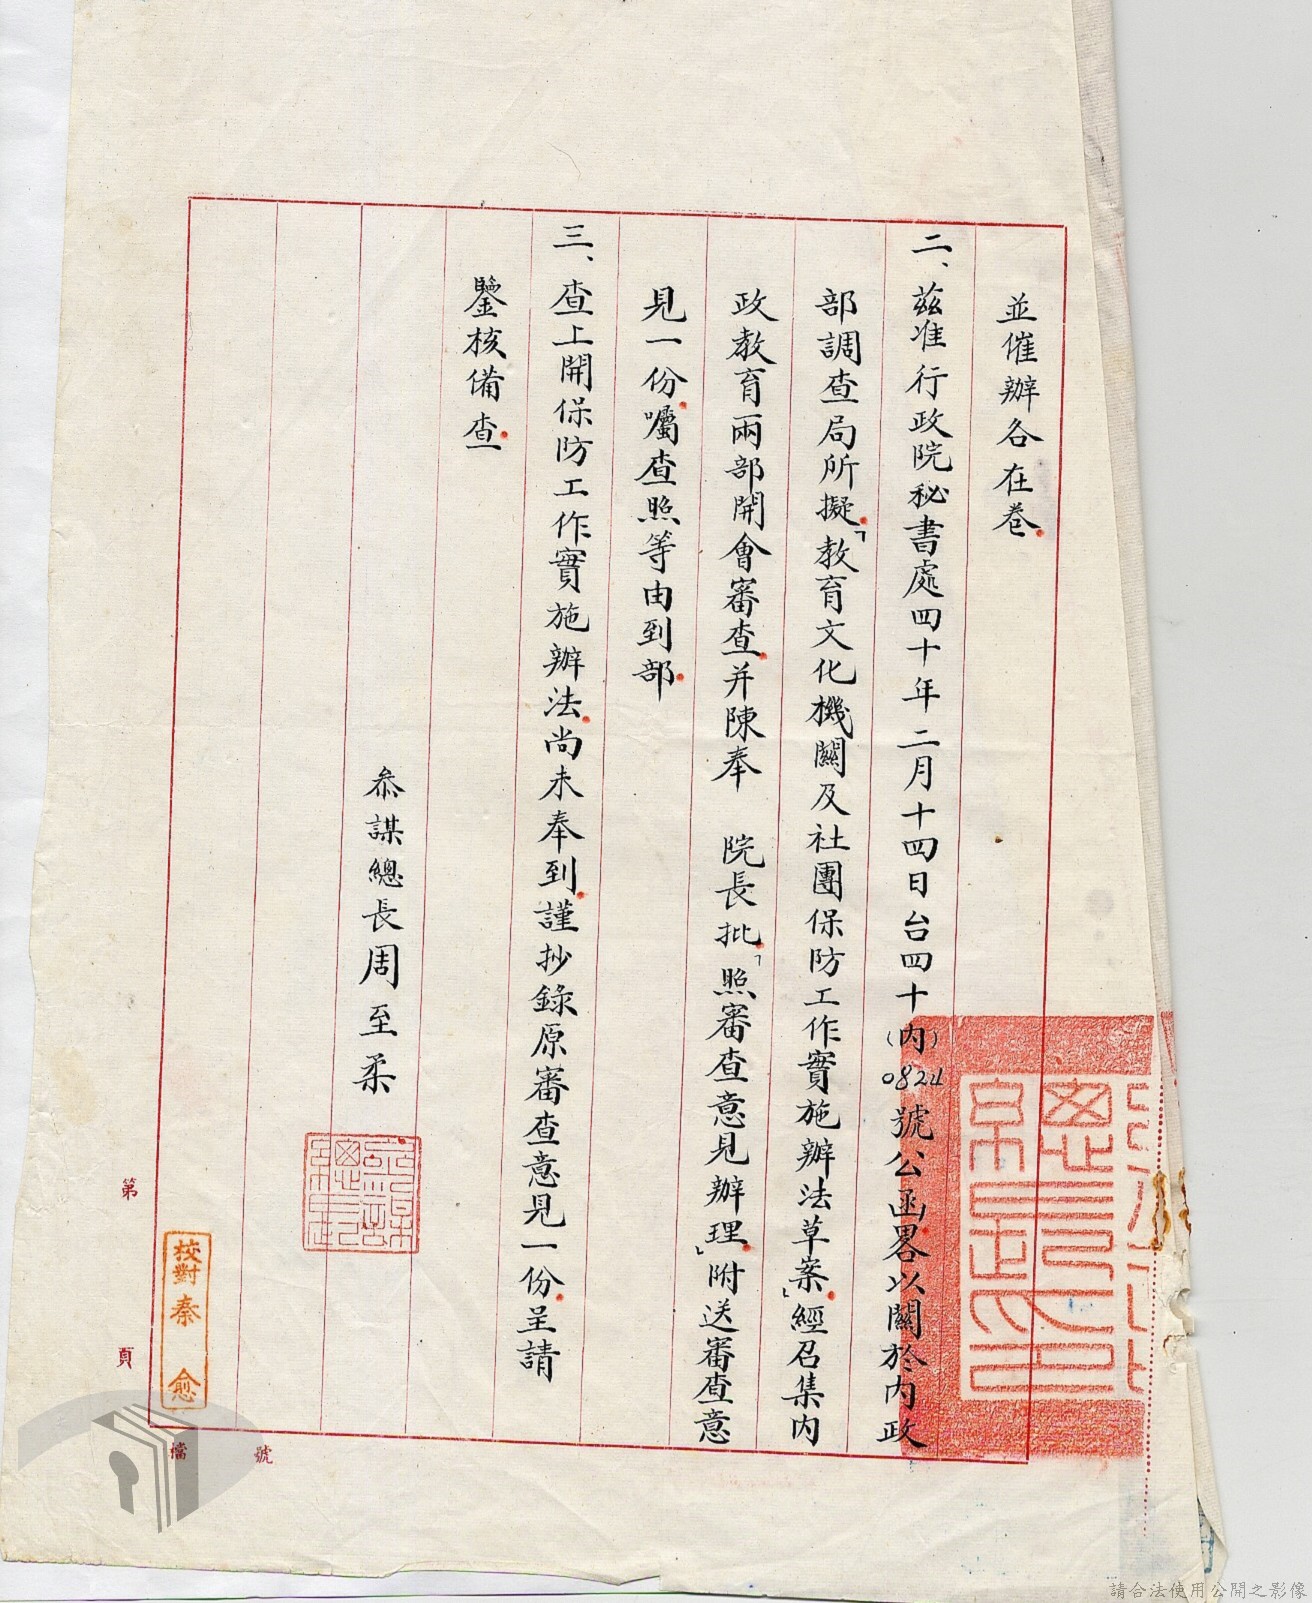 並催辦各在卷
二、茲准行政院秘書處四十年二月十四日台四十(內)0824號公函畧以關於內政
部調查局所擬「教育文化機關及社團保防工作實施辦法草案」經召集內
政教育兩部開會審查并陳奉 院長批「照審查意見辦理」附送審查意
見一份囑查照等由到部
三、查上開保防工作實施辦法尚未奉到謹抄錄原審查意見一份呈請
鑒核備查
參謀總長周至柔
參謀
總長
校對秦愈
第 頁
檔 號
請合法使用公開之影像